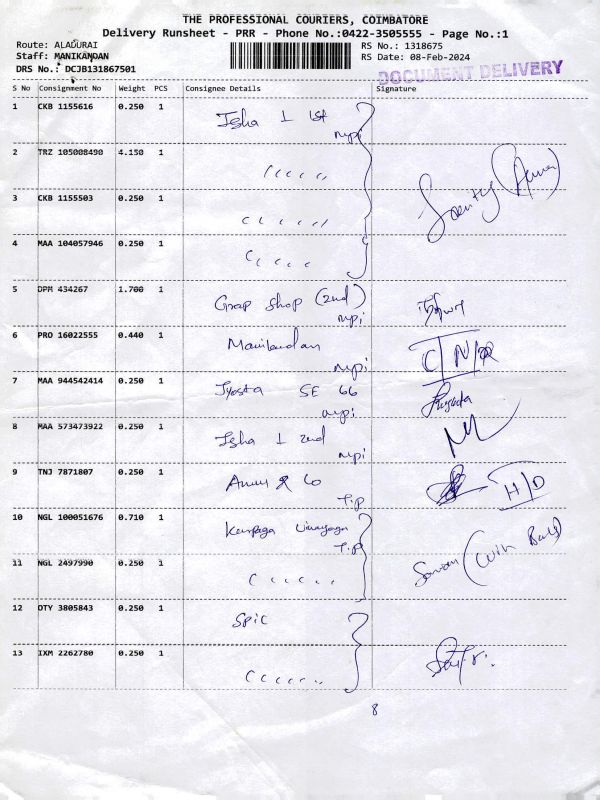 THE PROFESSIONAL COURIERS, COIMBATORE
Delivery Runsheet - PRR - Phone No.:0422-3505555 - Page No.:1
Route: ALADURAI
RS No.: 1318675
Staff: MANIKANDAN
RS Date: 08-Feb-2024
DRS No.: DCJB131867501
DOCUMENT DELIVERY
S No Consignment No Weight PCS Consignee Details Signature
1 CKB 1155616 0.250 1 Isha 1 1st
mpi
2 TRZ 105008490 4.150 1 " " " " "
3 CKB 1155503 0.250 1 " " " " "
4 MAA 104057946 0.250 1 " " " "
5 DPM 434267 1.700 1 Grap Shop (2nd)
mpi
6 PRO 16022555 0.440 1 Manikandan C/N/R
mpi
7 MAA 944542414 0.250 1 Jyosta SE 66
mpi
8 MAA 573473922 0.250 1 Isha 1 2nd
mpi
9 TNJ 7871807 0.250 1 & Co H/D
Tip
10 NGL 100051676 0.710 1 Karpaga Vinayaga
Tip
11 NGL 2497990 0.250 1 " " " " "
12 OTY 3805843 0.250 1 SPIC
13 IXM 2262780 0.250 1 " " " " " "
8